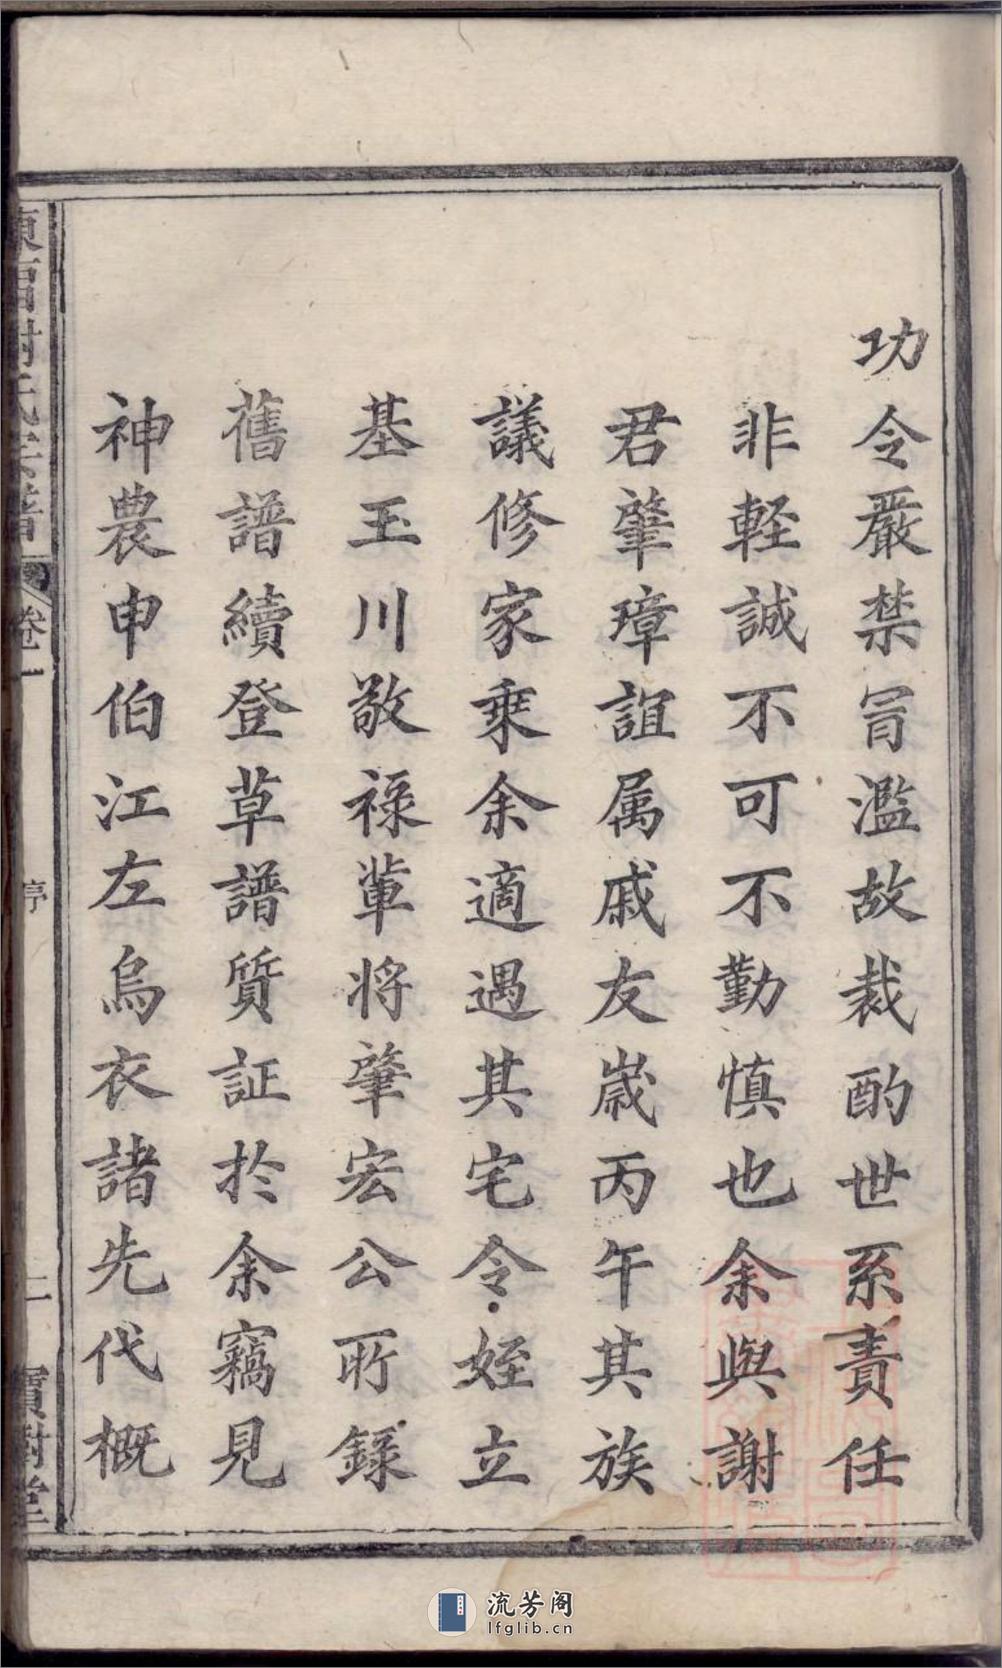 功令嚴禁冒濫故裁酌世系責任
非軽誠不可不勤慎也余與謝
君肇璋誼属戚友嵗丙午其族
議修家乗余適遇其宅令姪立
基玉川敬祿軰將肇宏公所錄
舊譜續登草譜質証於余竊見
神農申伯江左烏衣諸先代概
氏宗譜
卷一
序
二
寶樹堂
流芳阁
lfglib.cn